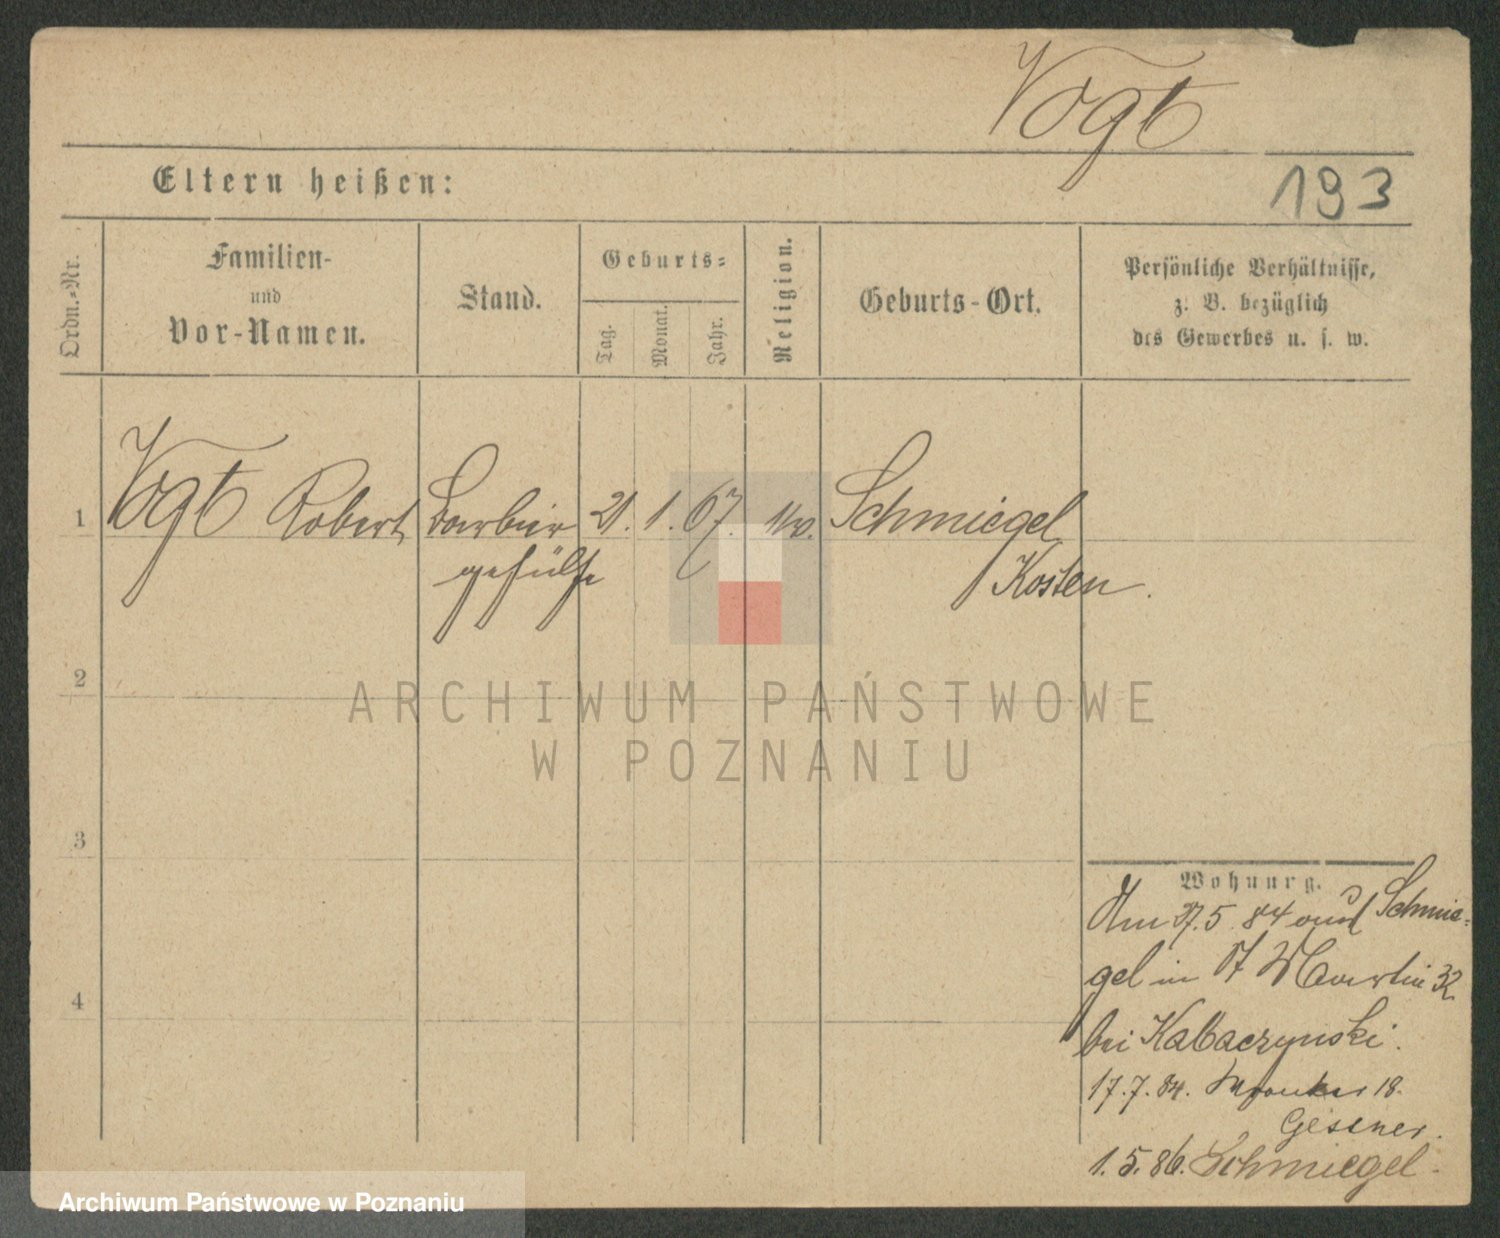 Vogt
Eltern heißen:
193
Ordn.-Nr.
Familien-
und
Vor-Namen.
Stand.
Geburts-
Tag.
Monat.
Jahr.
Religion.
Geburts-Ort.
Persönliche Verhältnisse,
z. B. bezüglich
des Gewerbes u. s. w.
1
Vogt Robert
Barbier
gehülfe
21. 1. 67.
Schmiegel
Kosten.
2
ARCHIWUM PAŃSTWOWE
W POZNANIU
3
Wohnung.
Am 27.5 84 aus Schmie-
gel in St Martin 32
bei Kabaczynski.
4
17.7.84. 18.
Gessner.
1.5.86. Schmiegel.
Archiwum Państwowe w Poznaniu